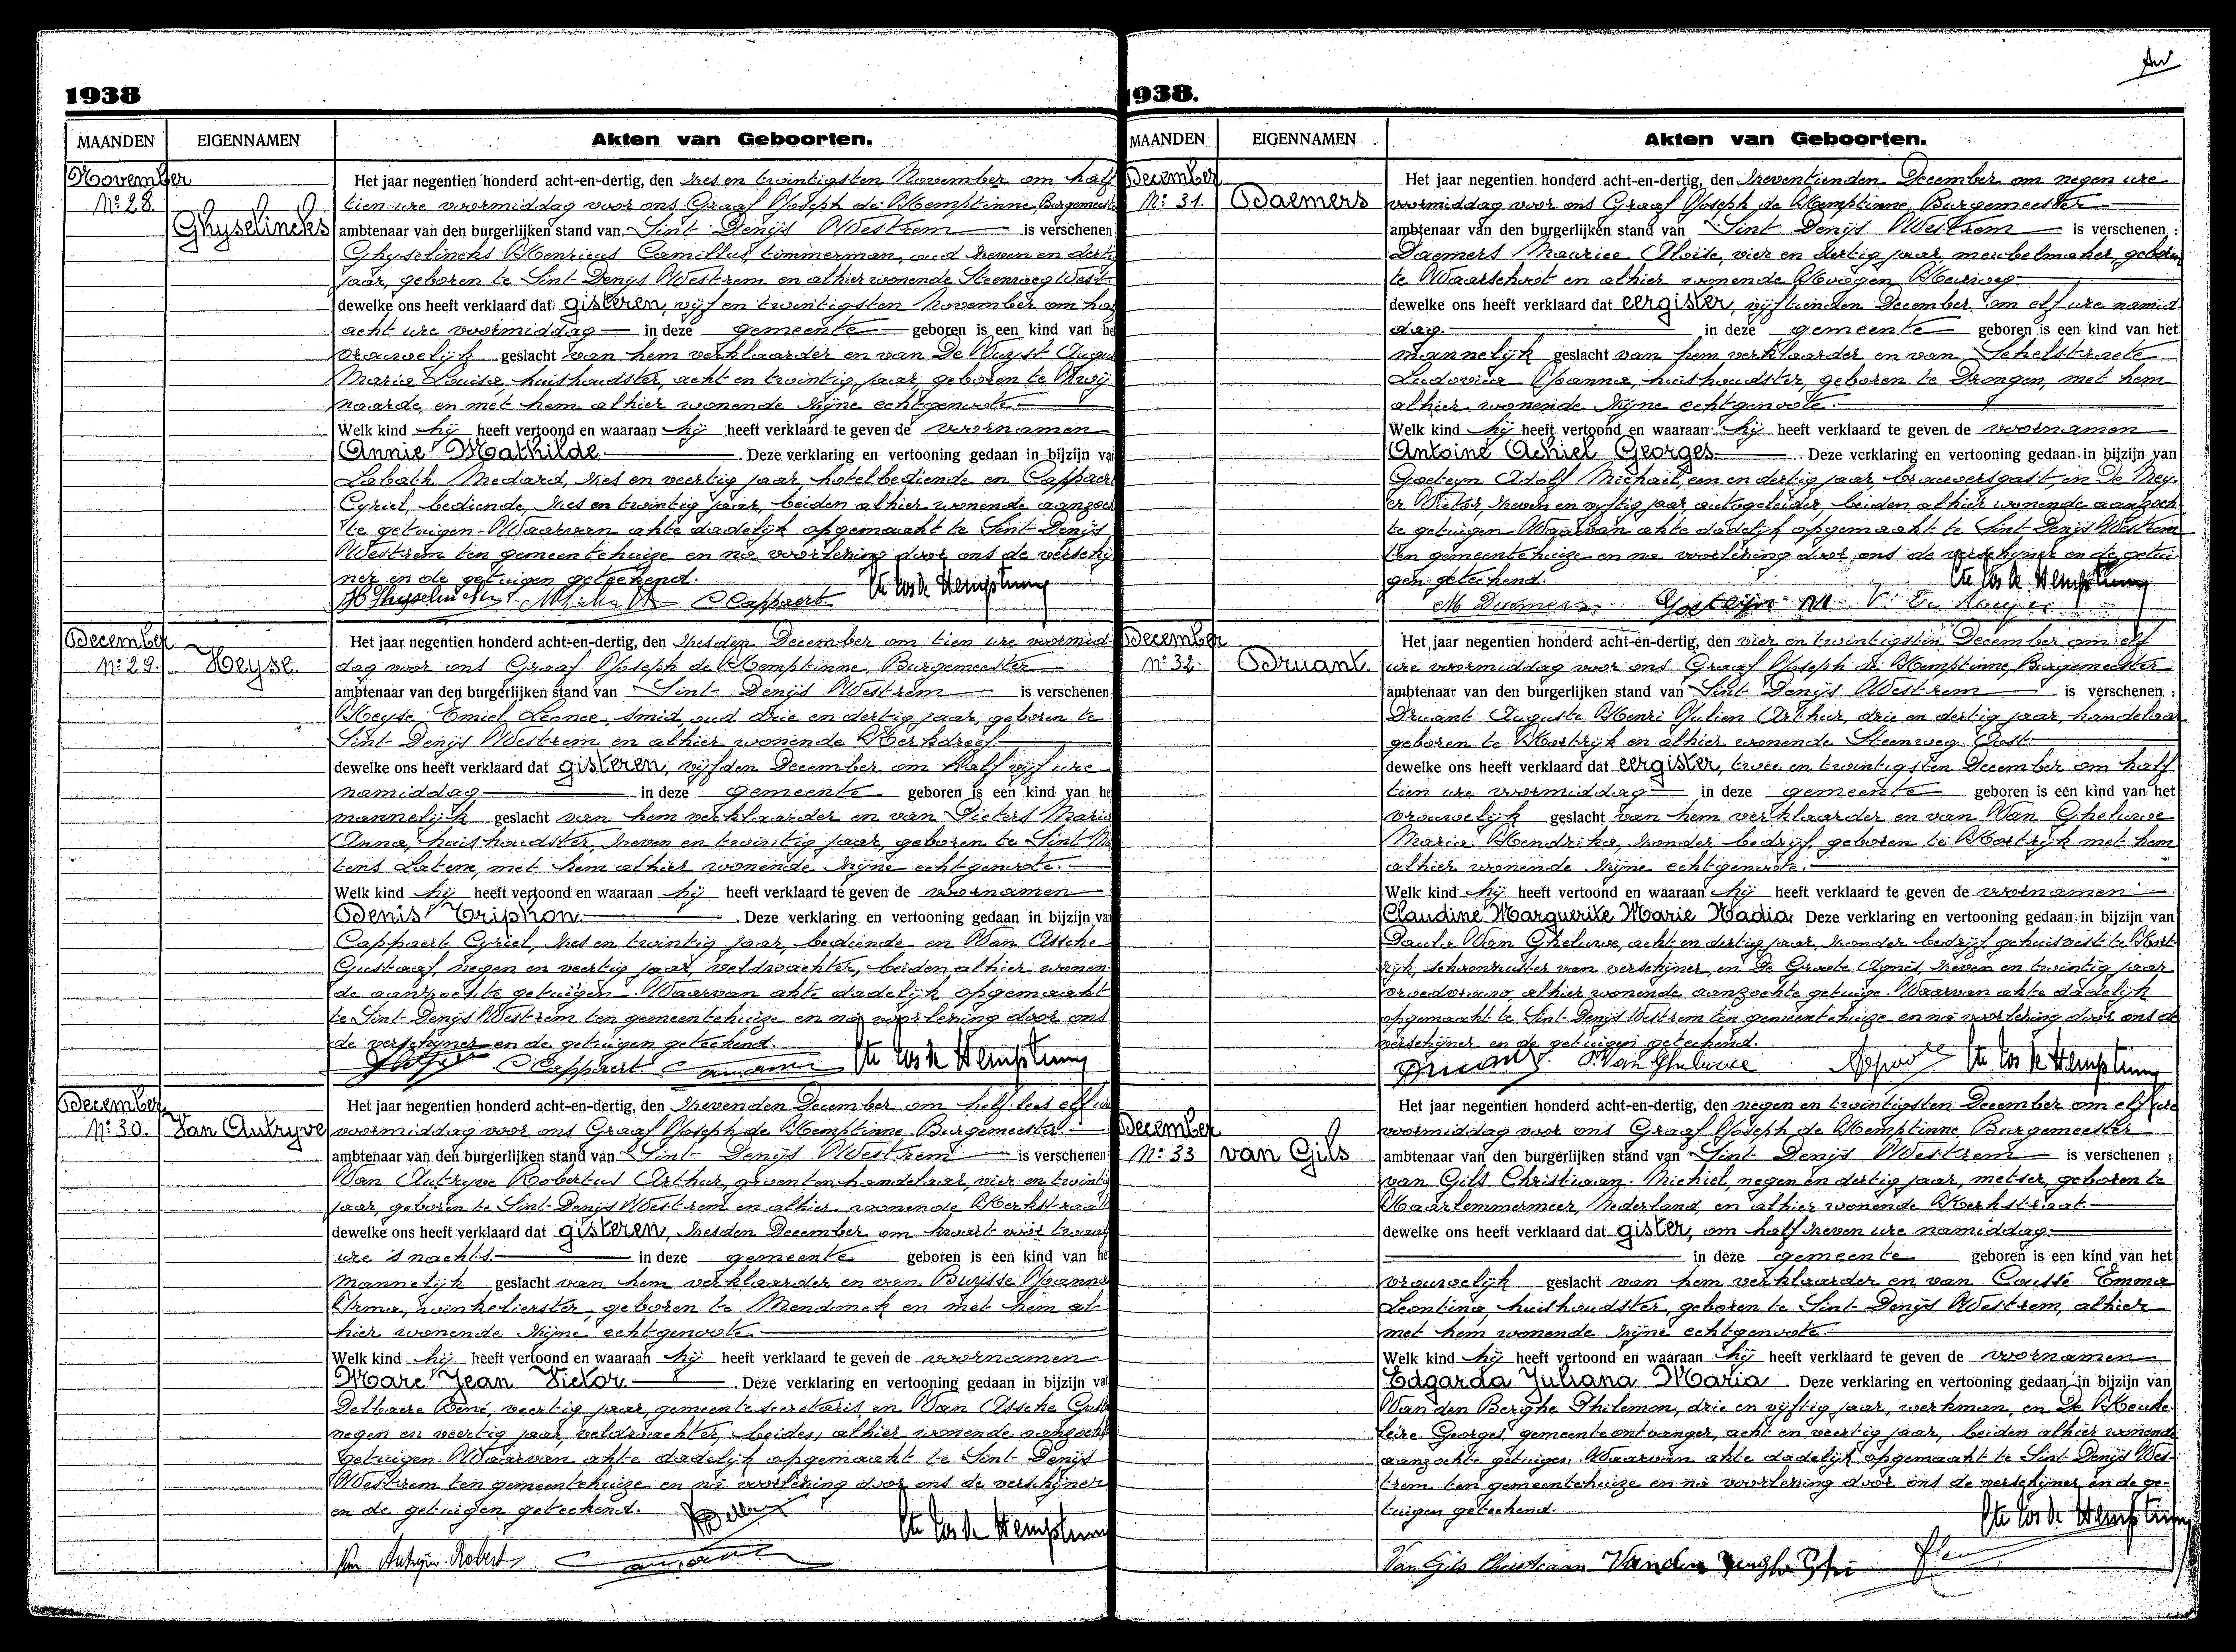 Aw
1938
MAANDEN EIGENNAMEN Akten van Geboorten.
November
Nº 28.
Ghyselincks
Het jaar negentien honderd acht-en-dertig, den zes en twintigsten November om half
tien ure voormiddag voor ons Graaf Joseph de Hemptinne, Burgemeester
ambtenaar van den burgerlijken stand van Sint Denijs Westrem is verschenen
Ghyselincks Henricus Camillus, timmerman, oud zeven en dertig
jaar, geboren te Sint-Denijs Westrem en alhier wonende Steenweg West.
dewelke ons heeft verklaard dat gisteren, vijf en twintigsten November om half
acht ure voormiddag in deze gemeente geboren is een kind van he
vrouwelijk geslacht van hem verklaarder en van De Wuyst Augus
Maria Louisa, huishoudster, acht en twintig jaar, geboren te Zwij
naarde, en met hem alhier wonende zijne echtgenoote.
Welk kind hij heeft vertoond en waaraan hij heeft verklaard te geven de voornamen
Annie Mathilde. Deze verklaring en vertooning gedaan in bijzijn va
Labath Medard, zes en veertig jaar, hotelbediende en Cappaer
Cyriel, bediende, zes en twintig jaar, beiden alhier wonende aanzoch
te getuigen. Waarvan akte dadelijk opgemaakt te Sint Denijs
Westrem ten gemeentehuize en na voorlezing door ons de verschij
ner en de getuigen geteekend.
H Ghyselincks C Cappaert Cte Jos de Hemptinne
December
Nº 29. Heyse.
Het jaar negentien honderd acht-en-dertig, den zesden December om tien ure voormid-
dag voor ons Graaf Joseph de Hemptinne, Burgemeester
ambtenaar van den burgerlijken stand van Sint-Denijs Westrem is verschenen
Heyse Emiel Leonce, smid, oud drie en dertig jaar, geboren te
Sint-Denijs Westrem en alhier wonende Kerkdreef.
dewelke ons heeft verklaard dat gisteren, vijfden December om half vijf ure
namiddag. in deze gemeente geboren is een kind van he
mannelijk geslacht van hem verklaarder en van Pieters Maria
Anna, huishoudster, zeven en twintig jaar, geboren te Sint Ma
tens Latem, met hem alhier wonende zijne echtgenoote.
Welk kind hij heeft vertoond en waaraan hij heeft verklaard te geven de voornamen
Denis Triphon. Deze verklaring en vertooning gedaan in bijzijn va
Cappaert Cyriel, zes en twintig jaar, bediende en Van Assche
Gustaaf, negen en veertig jaar, veldwachter, beiden alhier wonen-
de aanzochte getuigen. Waarvan akte dadelijk opgemaakt
te Sint-Denijs Westrem ten gemeentehuize en na voorlezing door ons
de verschijner en de getuigen geteekend.
C Cappaert Cte Jos de Hemptinne
December
Nº 30. Van Autryve
Het jaar negentien honderd acht-en-dertig, den zevenden December om half tees elf ure
voormiddag voor ons Graaf Joseph de Hemptinne Burgemeester.
ambtenaar van den burgerlijken stand van Sint-Denijs Westrem is verschenen
Van Autryve Robertus Arthur, groentenhandelaar, vier en twintig
jaar, geboren te Sint-Denijs Westrem en alhier wonende Kerkstraat
dewelke ons heeft verklaard dat gisteren, zesden December om kwart vóór twaalf
ure 's nachts. in deze gemeente geboren is een kind van he
mannelijk geslacht van hem verklaarder en van Buysse Joanna
Irma, winkelierster, geboren te Mendonck en met hem al-
hier wonende zijne echtgenoote
Welk kind hij heeft vertoond en waaraan hij heeft verklaard te geven de voornamen
Marc Jean Victor. Deze verklaring en vertooning gedaan in bijzijn van
Delbaere René, veertig jaar, gemeentesecretaris en Van Assche Gust
negen en veertig jaar, veldwachter, beiden, alhier wonende aanzocht
getuigen. Waarvan akte dadelijk opgemaakt te Sint-Denijs
Westrem ten gemeentehuize en na voorlezing door ons de verschijner
en de getuigen geteekend.
Cte Jos de Hemptinne
Van Autryve Robert
1938.
MAANDEN EIGENNAMEN Akten van Geboorten.
December
Nº 31. Daemers
Het jaar negentien honderd acht-en-dertig, den zeventienden December om negen ure
voormiddag voor ons Graaf Joseph de Hemptinne, Burgemeester
ambtenaar van den burgerlijken stand van Sint Denijs Westrem is verschenen :
Daemers Maurice Aloïse, vier en dertig jaar, meubelmaker, geboren
te Waarschoot en alhier wonende Hoogen Heirweg
dewelke ons heeft verklaard dat eergister, vijftienden December, om elf ure namid-
dag. in deze gemeente geboren is een kind van het
mannelijk geslacht van hem verklaarder en van Schelstraete
Ludovica Joanna, huishoudster, geboren te Drongen, met hem
alhier wonende zijne echtgenoote.
Welk kind hij heeft vertoond en waaraan hij heeft verklaard te geven de voornamen
Antoine Achiel Georges. Deze verklaring en vertooning gedaan in bijzijn van
Goeteyn Adolf Michaël, een en dertig jaar, brouwersgast en De Mey-
er Victor, zeven en vijftig jaar, autogeleider, beiden alhier wonende aanzoch-
te getuigen. Waarvan akte dadelijk opgemaakt te Sint-Denijs Westrem
ten gemeentehuize en na voorlezing door ons de verschijner en de getui-
gen geteekend. Cte Jos de Hemptinne
M Daemers. Goeteyn M. V. De Meyer
December
Nº 32. Druant.
Het jaar negentien honderd acht-en-dertig, den vier en twintigsten December om elf
ure voormiddag voor ons Graaf Joseph de Hemptinne, Burgemeester
ambtenaar van den burgerlijken stand van Sint Denijs Westrem is verschenen :
Druant Auguste Henri Julien Arthur, drie en dertig jaar, handelaar
geboren te Kortrijk en alhier wonende Steenweg Oost.
dewelke ons heeft verklaard dat eergister, twee en twintigsten December om half
tien ure voormiddag in deze gemeente geboren is een kind van het
vrouwelijk geslacht van hem verklaarder en van Van Gheluwe
Maria Hendrika, zonder bedrijf, geboren te Kortrijk met hem
alhier wonende zijne echtgenoote.
Welk kind hij heeft vertoond en waaraan hij heeft verklaard te geven de voornamen
Claudine Marguerite Marie Nadia. Deze verklaring en vertooning gedaan in bijzijn van
Paula Van Gheluwe, acht en dertig jaar, zonder bedrijf, gehuisvest te Kort-
rijk, schoonzuster van verschijner, en De Groote Agnes, zeven en twintig jaar
vroedvrouw, alhier wonende aanzochte getuige. Waarvan akte dadelijk
opgemaakt te Sint-Denijs Westrem ten gemeentehuize en na voorlezing door ons de
verschijner en de getuigen geteekend.
Druant P. Van Gheluwe Cte Jos de Hemptinne
December
Nº 33 van Gils
Het jaar negentien honderd acht-en-dertig, den negen en twintigsten December om elf ure
voormiddag voor ons Graaf Joseph de Hemptinne Burgemeester
ambtenaar van den burgerlijken stand van Sint Denijs Westrem is verschenen :
van Gils Christiaan Michiel, negen en dertig jaar, metser, geboren te
Haarlemmermeer, Nederland, en alhier wonende Kerkstraat.
dewelke ons heeft verklaard dat gister, om half zeven ure namiddag.
in deze gemeente geboren is een kind van het
vrouwelijk geslacht van hem verklaarder en van Coussé Emma
Leontina, huishoudster, geboren te Sint-Denijs Westrem, alhier
met hem wonende zijne echtgenoote.
Welk kind hij heeft vertoond en waaraan hij heeft verklaard te geven de voornamen
Edgarda Juliana Maria. Deze verklaring en vertooning gedaan in bijzijn van
Van den Berghe Philemon, drie en vijftig jaar, werkman, en De Keuke-
leire Georges, gemeenteontvanger, acht en veertig jaar, beiden alhier wonende
aanzochte getuigen. Waarvan akte dadelijk opgemaakt te Sint Denijs Wes-
trem ten gemeentehuize en na voorlezing door ons de verschijner en de ge-
tuigen geteekend.
Cte Jos de Hemptinne
Van Gils Christiaan Vanden Berghe Phi